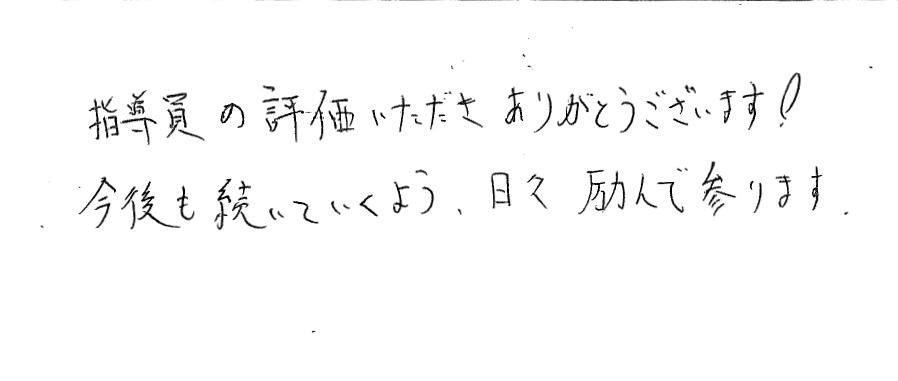 指導員の評価いただきありがとうございます!
今後も続いていくよう、日々励んで参ります.